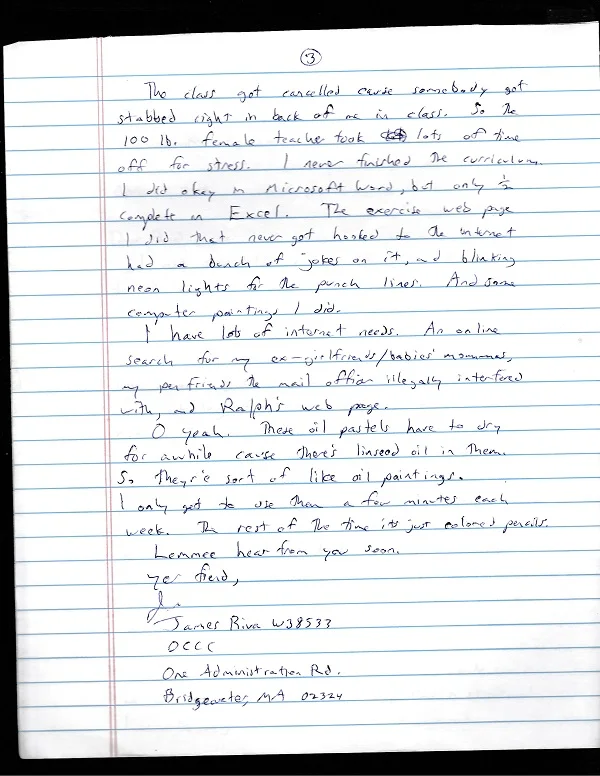 3
The class got cancelled cause somebody got
stabbed right in back of me in class. So the
100 lb. female teacher took lots of time
off for stress. I never finished the curriculum.
I did okey in Microsoft Word, but only 1/2
complete in Excel. The exercise web page
I did that never got hooked to the internet
had a bunch of jokes on it, and blinking
neon lights for the punch lines. And some
computer paintings I did.
I have lots of internet needs. An online
search for my ex-girlfriends/babies' mommas,
my penfriends the mail officer illegally interfered
with, and Ralph's web page.
O yeah. These oil pastels have to dry
for awhile cause there's linseed oil in them.
So they're sort of like oil paintings.
I only get to use them a few minutes each
week. The rest of the time its just colored pencils.
Lemmee hear from you soon.
Yer fiend,
James Riva W38533
OCCC
One Administration Rd.
Bridgewater, MA 02324